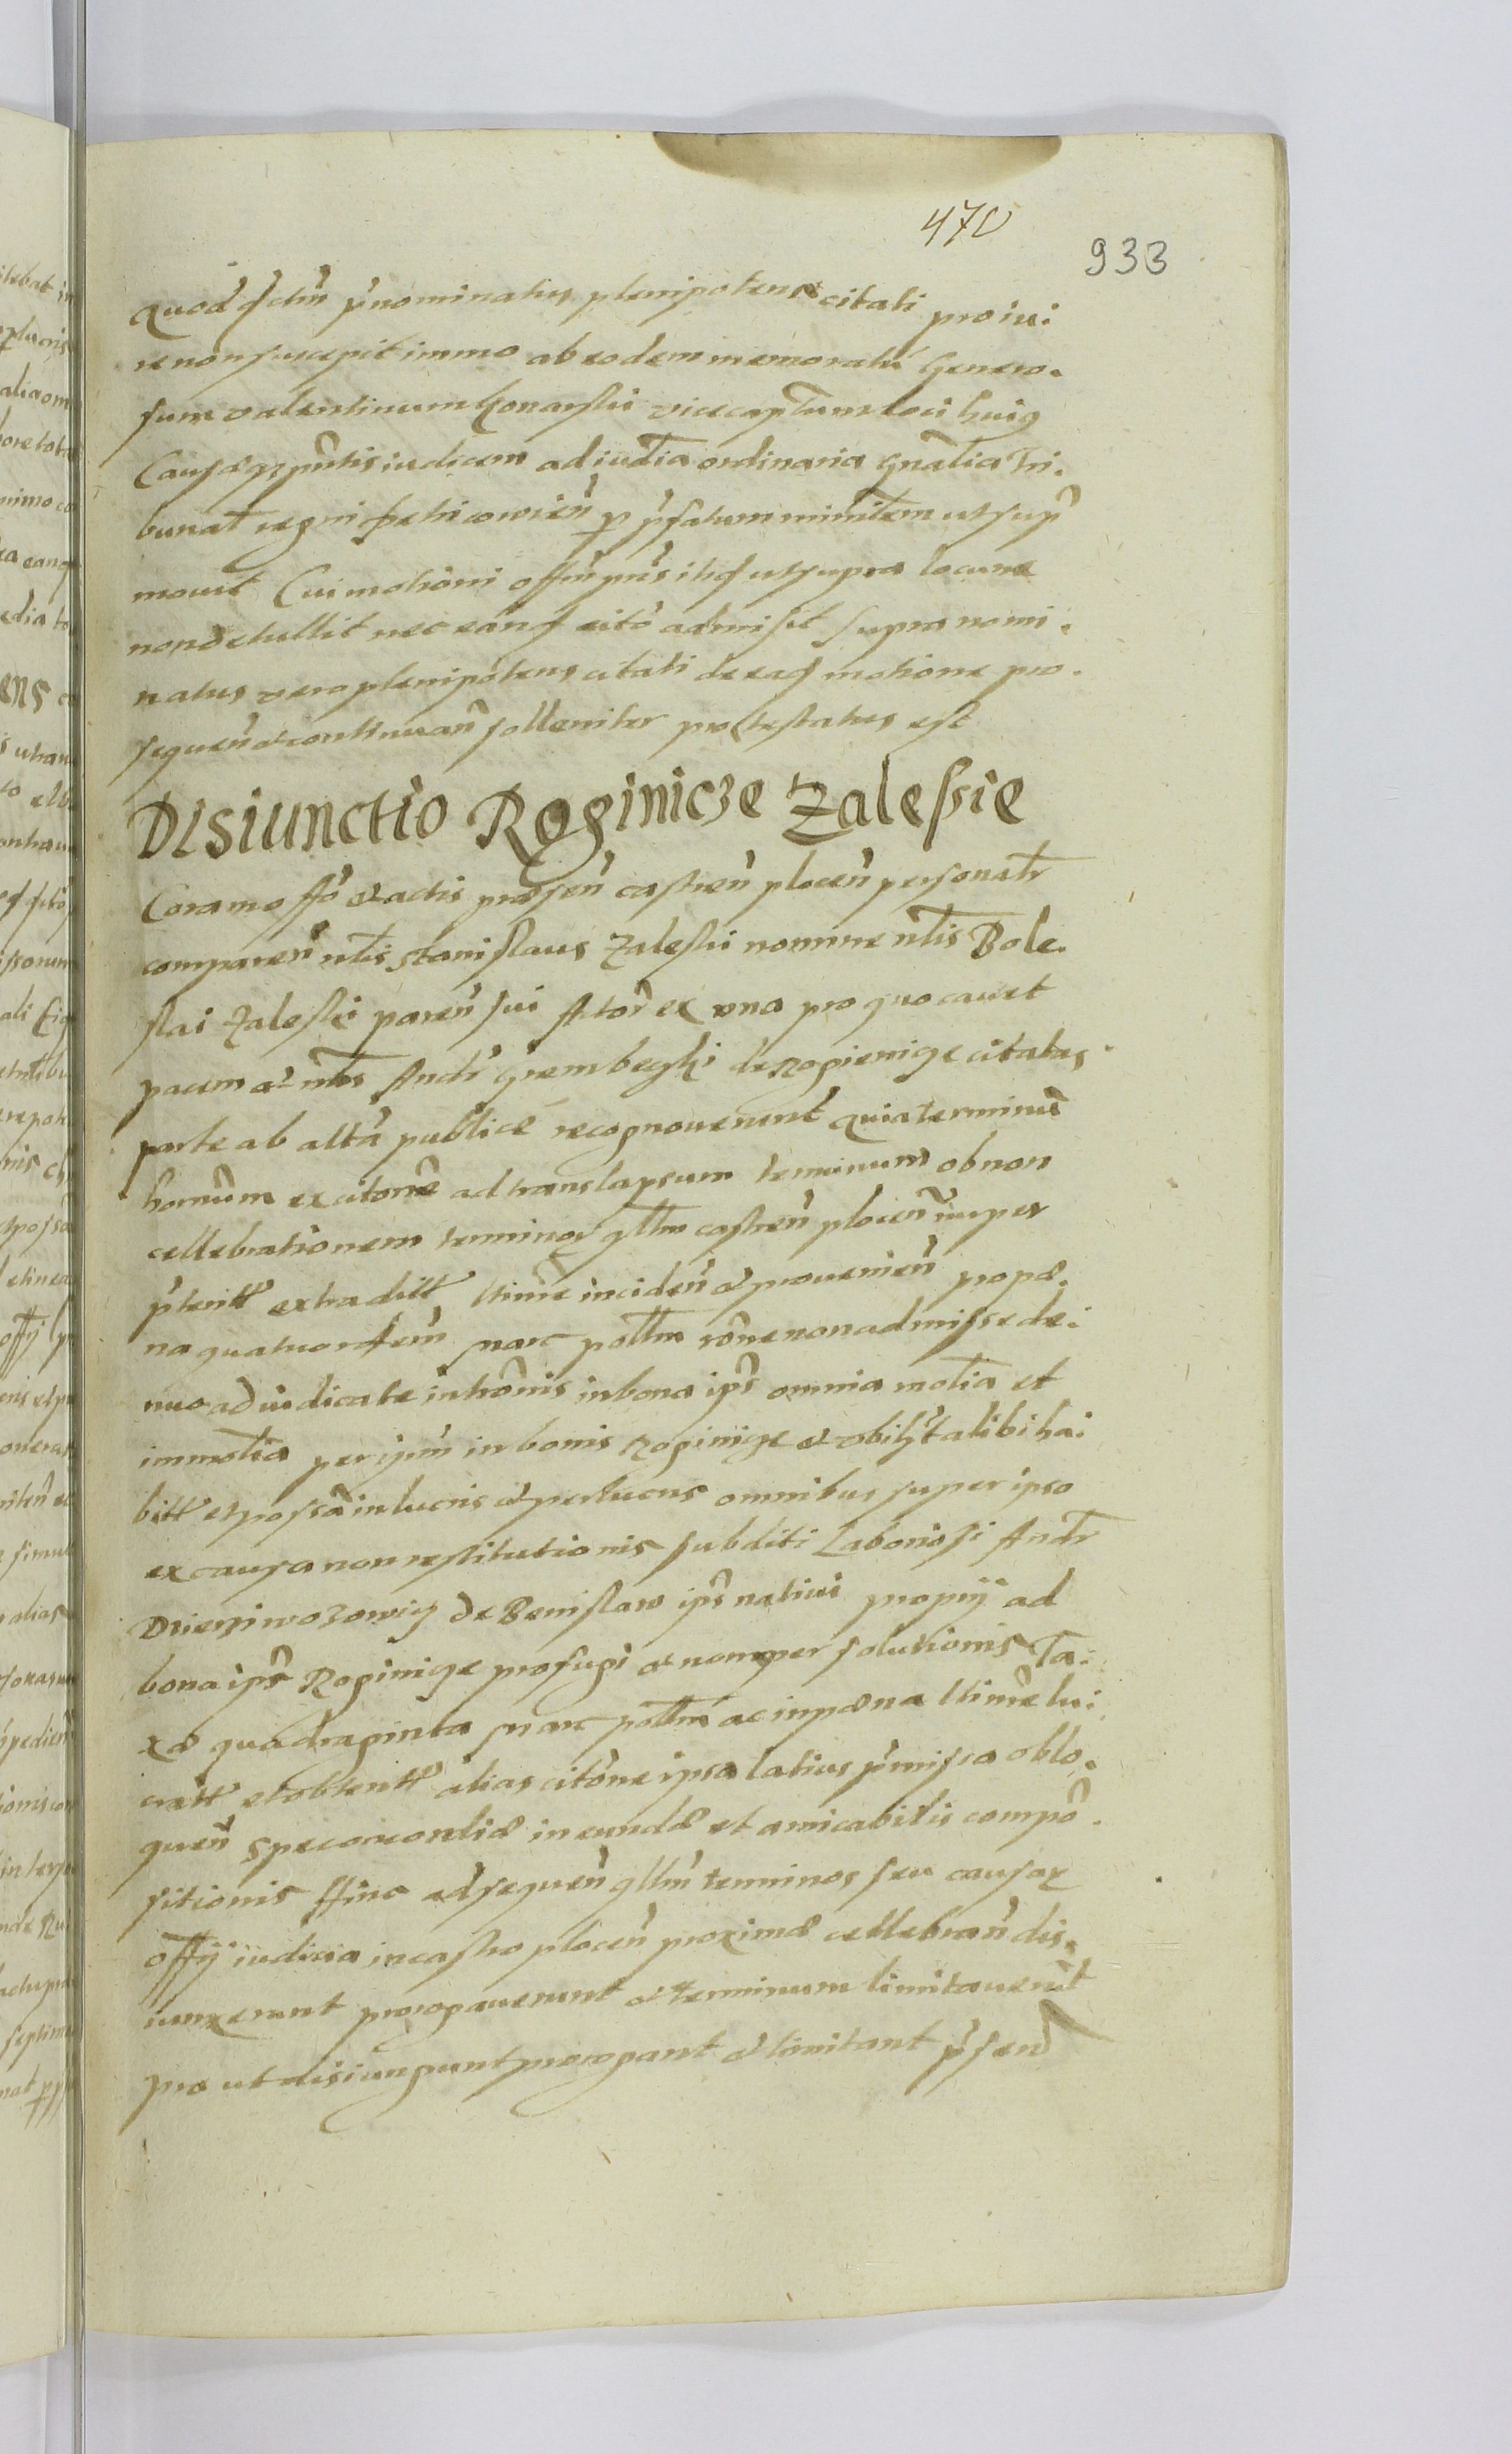 470
933
quod prænominatus plenipotens citati pro iu:
re non suscepit immo ab eodem memoratũ Genero.
sum valentinum Konarski vicecaptum loci huiꝰ
Causæ pñtis iudicem ad iudia ordinaria gñalia Tri.
bunat regni Pethricowieñ p pfatum ministem ut supr
mouit Cui motioni offm pñs ut supra locum
non detullit nec admisit supra nomi.
natus vero plenipotens citati de eadꝗ motione pro.
sequeñ et continuañ solleniter protestatus est
DISIUNCTIO Roginicze Zalessie
Coram offo et actis præseñ castreñ ploceñ personalr
compareñ nlis Stanislaus Zaleski nomine nlis Bole.
slai Zaleski pareñ sui Actor ex vna pro quo cauet
pacem et nlis Andr Grembeczki de Rogienicze citatus
parte ab altera publice recognouerunt quia terminũ
homũm ex citone ad translapsum terminum ob non
cellebrationem terminoꝝ qllm castreñ ploceñ nuper
ptentt extraditt time incideñ et proueniẽn pro pœ.
na quatuordecim marc pollm rõne non admisse de:
nuo adiudicate intromis in bona ips omnia molia et
immolia per ipm in bonis Roginicze et vbilꝫt alibi ha:
bitt et possa in lucris et perlucris omnibus super ipso
ex causa non restitutionis subditi Laboriosi Andr
de Benislaw ips natiui proprij ad
bona ips Roginicze profugi et non persolutionis Ta:
xæ quadraginta marc pollm ac in pœna time lu:
cratt et obtentt alias citone ipsa latius pmissa oblo.
queñ spe concordiæ ineundæ et amicabilis compo.
sitionis Hinc ad sequeñ qllm terminos seu causaꝝ
offij iudicia in castro ploceñ proxime cellebrañ dis.
iunxerunt prorogauerunt et terminum limitauerũt
pro ut disiungunt prorogant et limitant pseñ